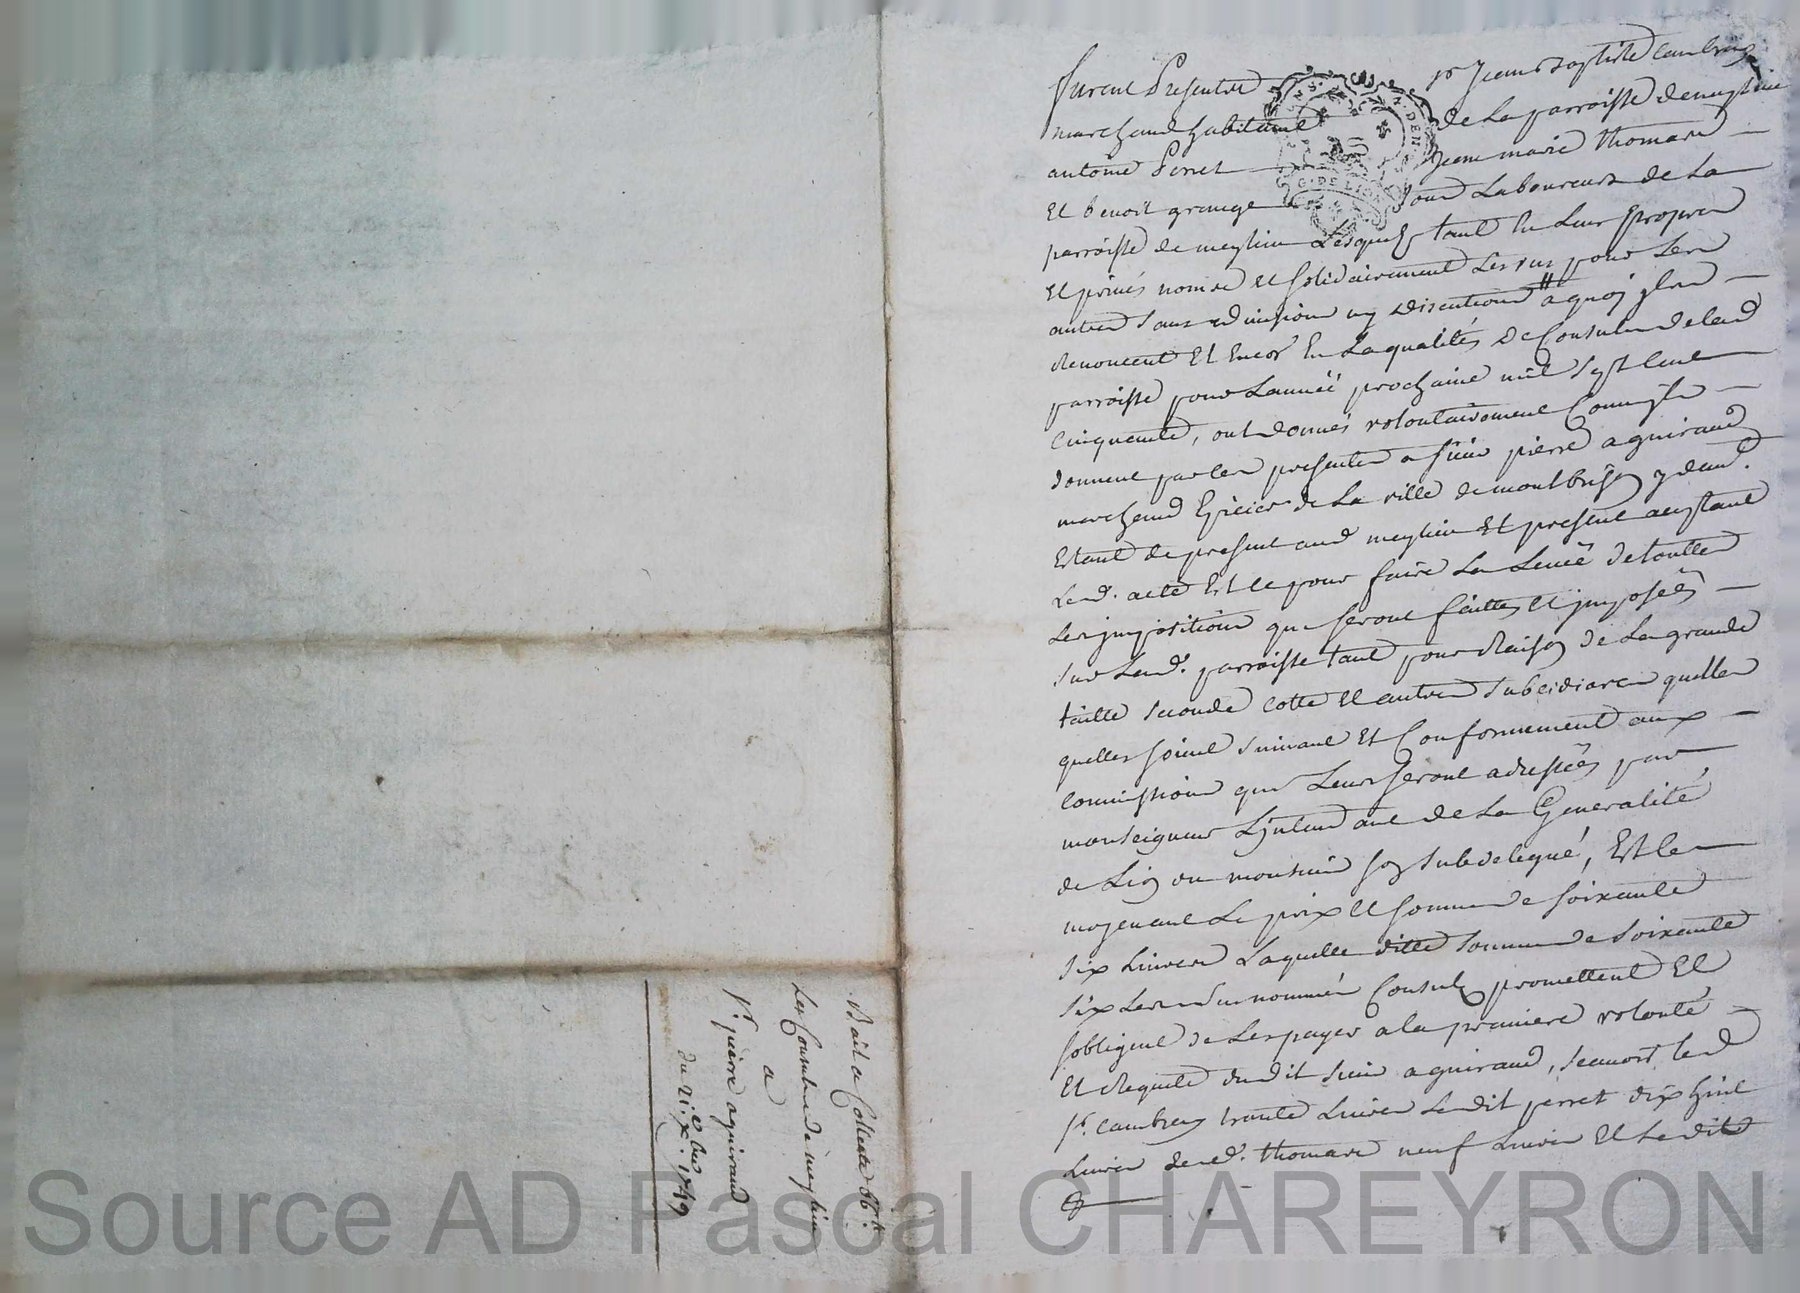 furent Presentes sr Jean Baptiste Cambray
marchand habitant de La parroisse de meylieu
antoine Perret Jean marie thomas
Et benoit grange tous Laboureurs de La
parroisse de meylieu Lesquels tant En Leur propres
Et privés noms et solidairement Les uns pour Les
autres sans division ny discution a quoy ils
Renoncent Et Encor En La qualités de Consuls de lad
parroisse pour Lannéé prochaine mil sept Cent
Cinquante, ont donnés volontairement Comme ils
donnent par Les presentes a sieur pierre aguiraud
marchand Epicier de La ville de montbrison y dem.
Estant de present aud meylieu Et present acceptant
Led. acte Est ce pour faire La Levéé de touttes
Les impositions qui seront faittes et imposéés
sur Lad. parroisse tant pour Raison de La grande
taille seconde cotte et autres subcidiares quelles
quelles soient suivant Et Conformement aux
Commissions qui Leurs seront adresséés par
monseigneur L'jntendant de La Generalité
de Lion ou monsieur son subdelegué, Est Ce
moyenant Le prix et somme de soixante
six Livres Laquelle ditte somme de soixante
six Les susnommés Consuls promettent Et
sobligent de Les payer a la premiere volonté
Et Requete du dit sieur aguiraud, scauoir led
sr. Cambray trante Livres Ledit perret dix huit
Livres Led. thomas neuf Livres Et Ledit
Bail a Collecte 66 lt.
Les Consuls de meylieu
a
Sr. pierre aguiraud
du 21. Xbre. 1749
G. DE LION
Source AD Pascal CHAREYRON